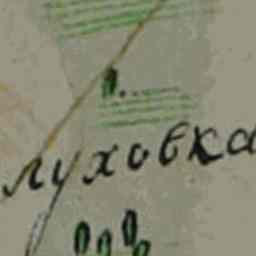 луховка